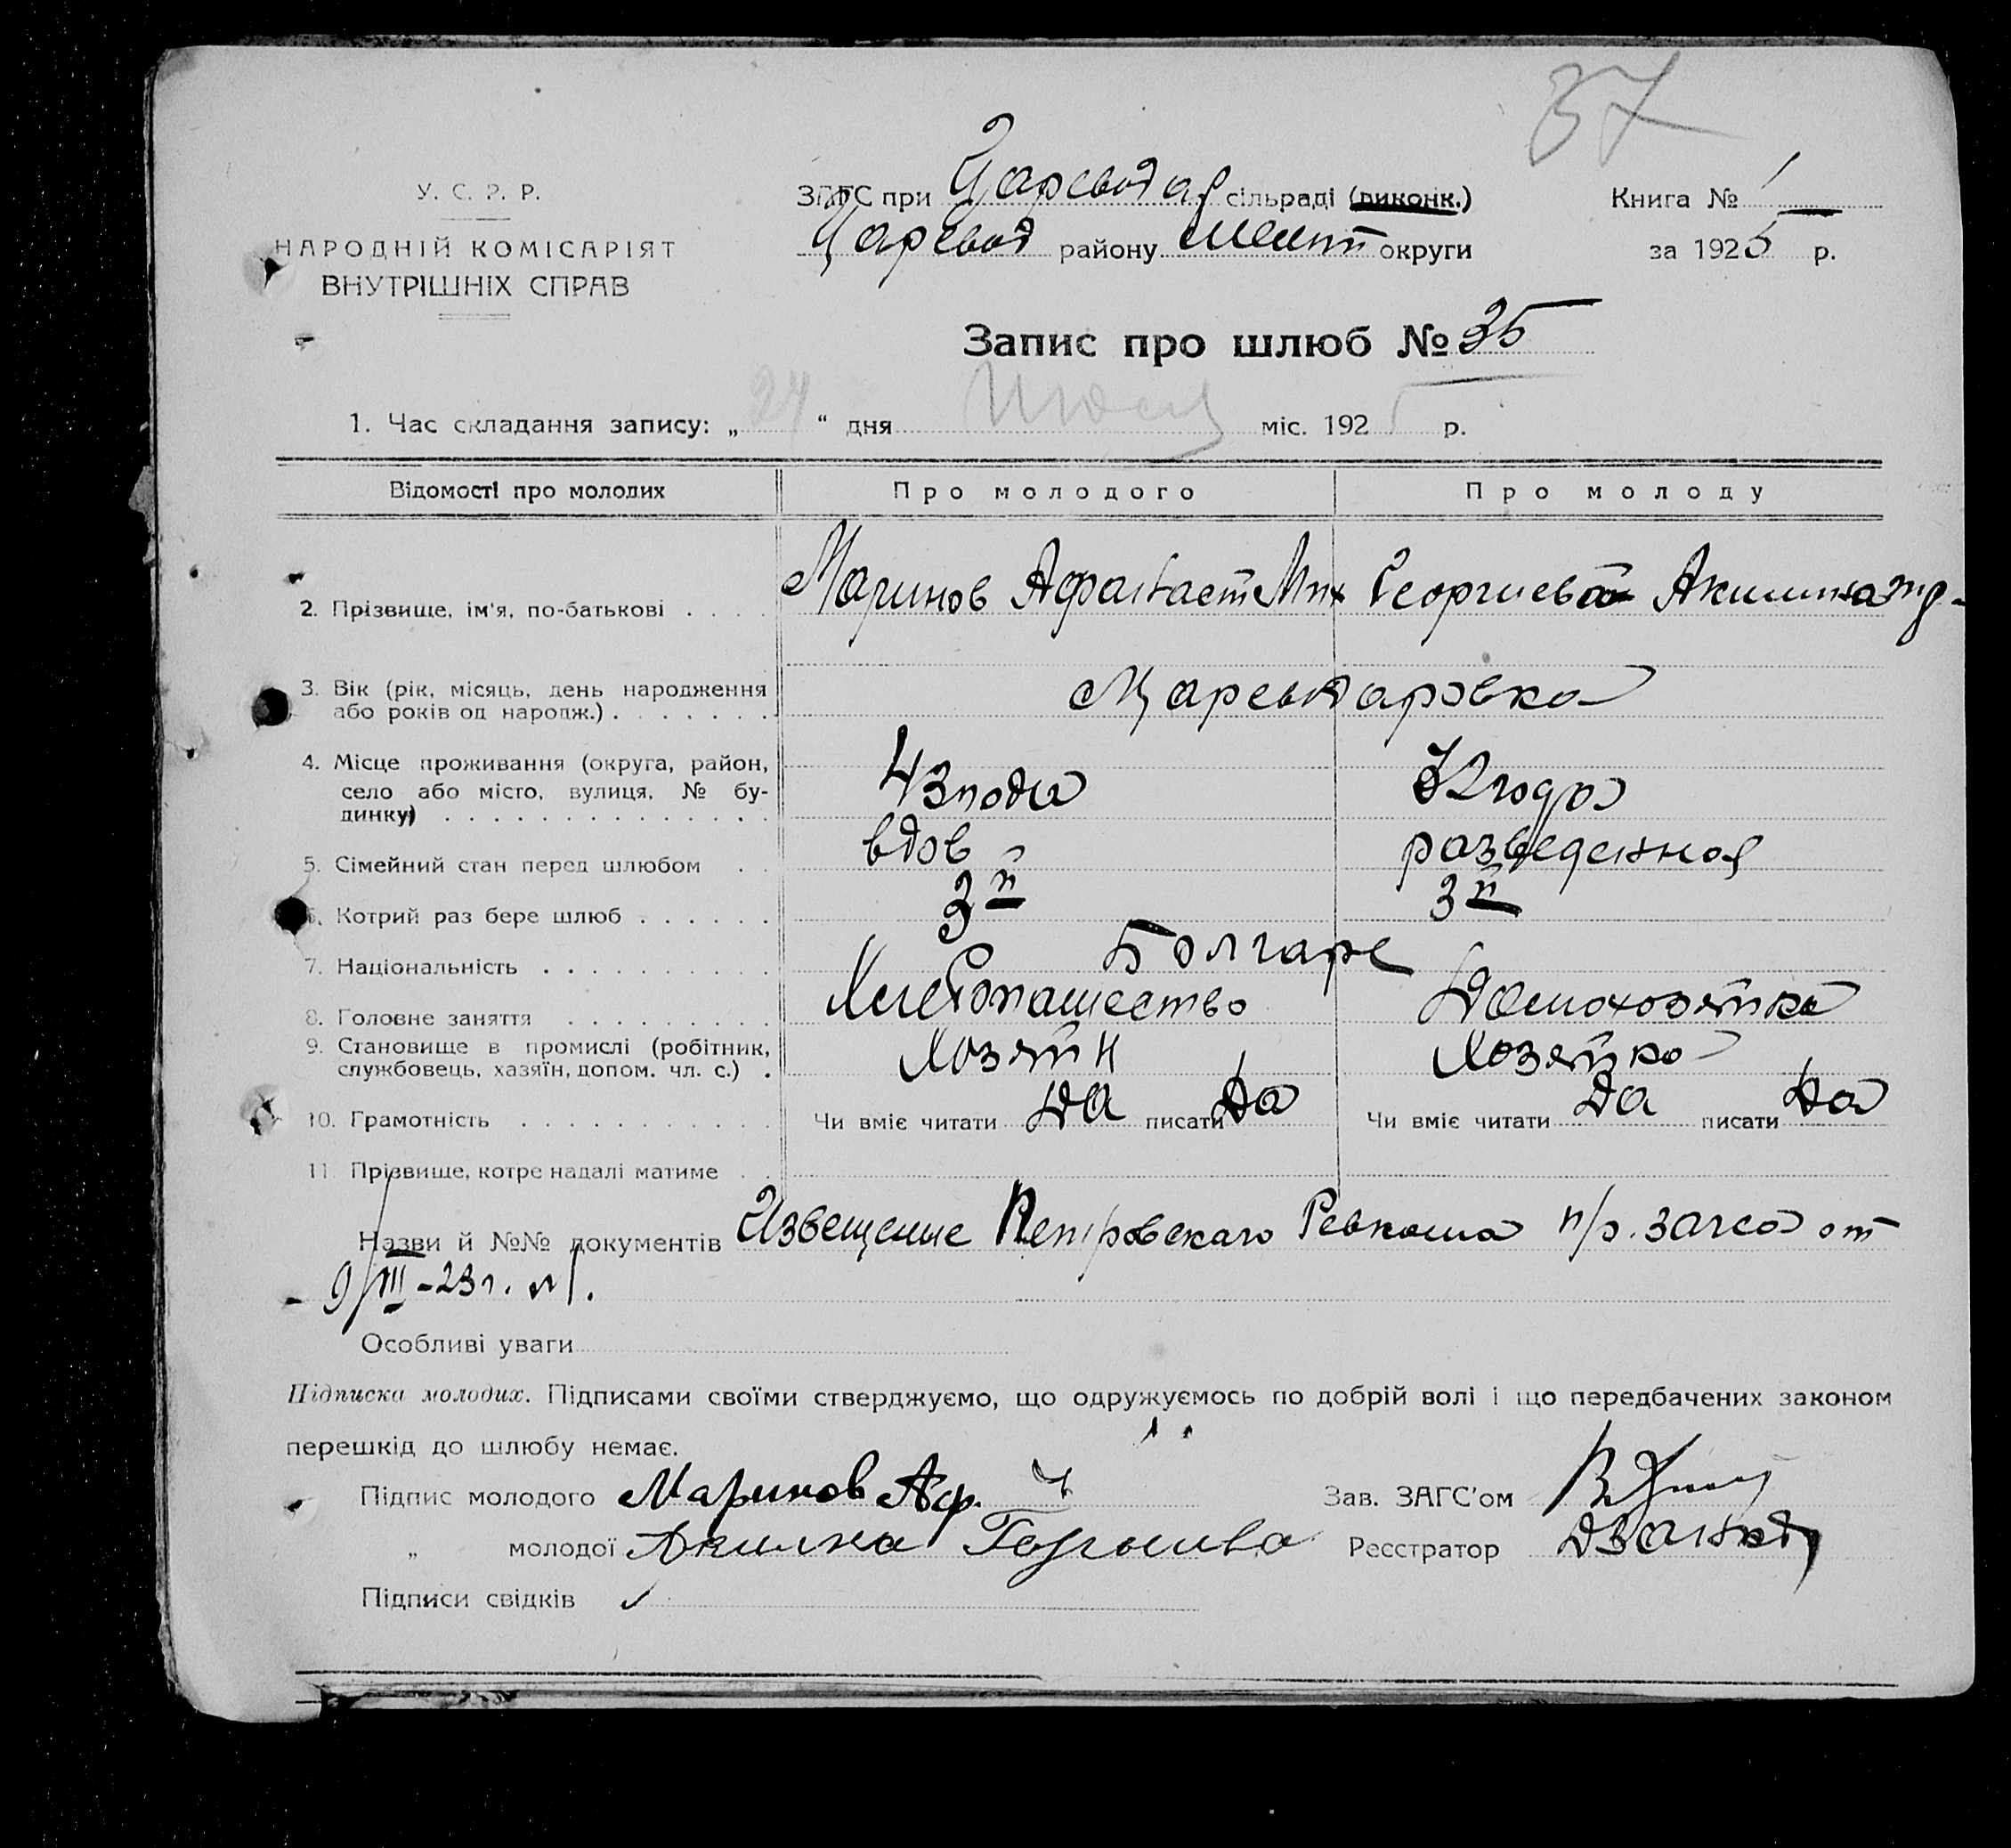 37
У. С. Р. Р.
НАРОДНІЙ КОМІСАРІЯТ
ВНУТРІШНІХ СПРАВ
ЗАГС при Царевод сільраді (виконк.)
Царевод району Мелит округи
Книга № 1
за 1925 р.
Запис про шлюб № 35
1. Час складання запису: „ 24 “ дня Июля міс. 1925 р.
Відомості про молодих Про молодого Про молоду
2. Прізвище, ім'я, по-батькові . . . . Маринов Афанаст Мих Георгиева Акилина
3. Вік (рік, місяць, день народження
або років од народж.) . . . . . . .
4. Місце проживання (округа, район,
село або місто, вулиця, № бу-
динку) . . . . . . . . . . . . . . 43 года 32 года
5. Сімейний стан перед шлюбом . . вдов разведенная
6. Котрий раз бере шлюб . . . . . . 3й 3й
7. Національність . . . . . . . . . . Болгаре
8. Головне заняття . . . . . . . . . Хлебопашество Домохозяйка
9. Становище в промислі (робітник,
службовець, хазяїн, допом. чл. с.) . Хозяин Хозяйка
10. Грамотність . . . . . . . . . . . Чи вміє читати да писати да Чи вміє читати да писати да
11. Прізвище, котре надалі матиме . .
Назви й №№ документів Извещение Петровскаго Ревкома п/р. загса от
9/III-23г. №1.
Особливі уваги
Підписка молодих. Підписами своїми стверджуємо, що одружуємось по добрій волі і що передбачених законом
перешкід до шлюбу немає.
Підпис молодого Маринов Аф. Зав. ЗАГС'ом
„ молодої Акилина Горгиева Реєстратор
Підписи свідків